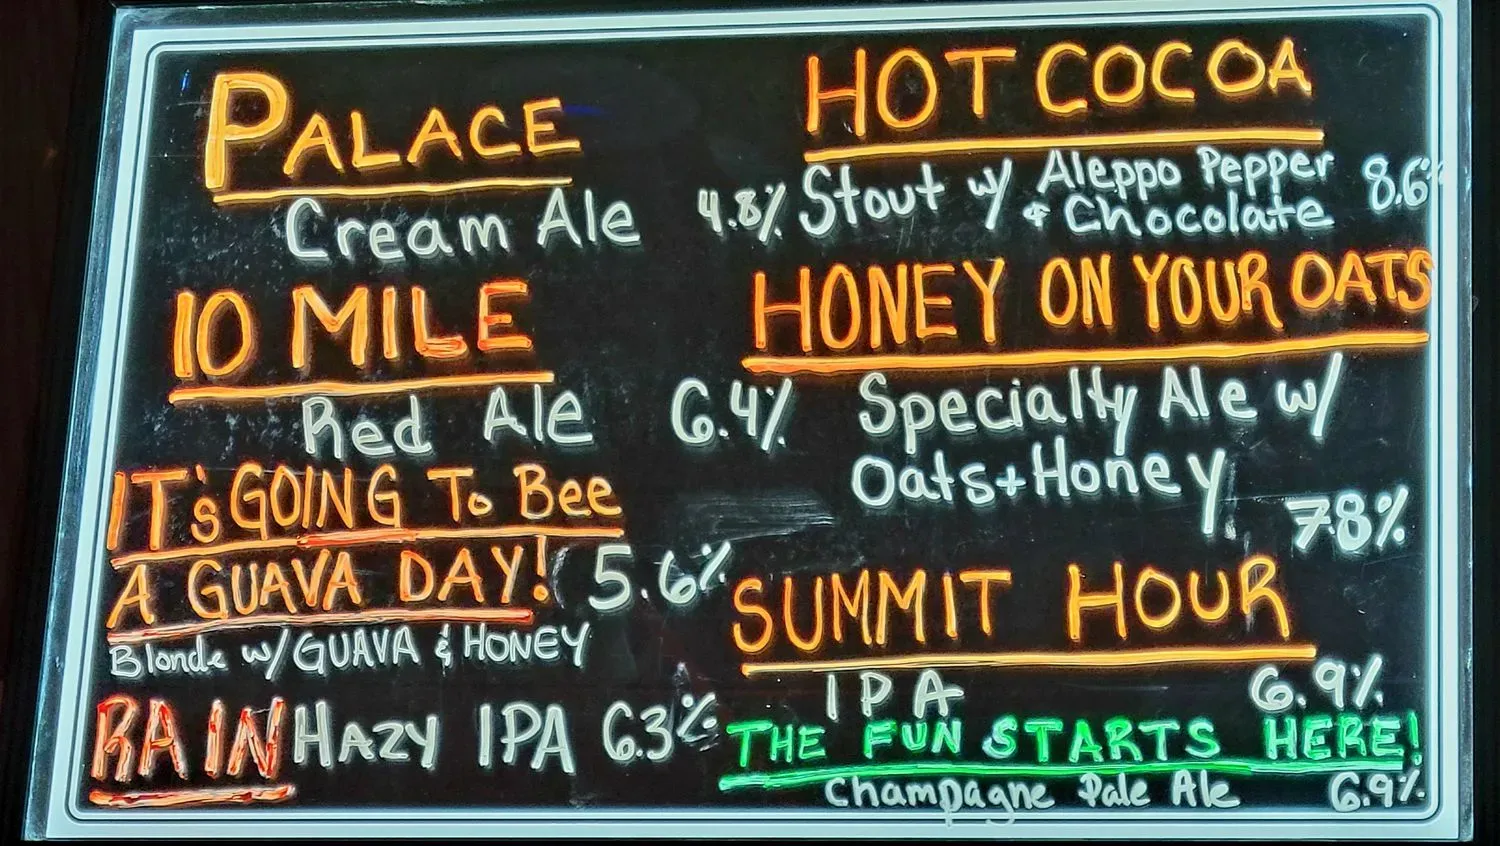 PALACE
Cream Ale 4.8%
10 MILE
Red Ale 6.4%
IT's GOING To Bee
A GUAVA DAY! 5.6%
Blonde w/ GUAVA & HONEY
RAIN HAZY IPA 6.3%
HOT COCOA
Stout w/ Aleppo Pepper 8.6%
& Chocolate
HONEY ON YOUR OATS
Specialty Ale w/
Oats + Honey
7.8%
SUMMIT HOUR
IPA 6.9%
THE FUN STARTS HERE!
Champagne Pale Ale 6.9%